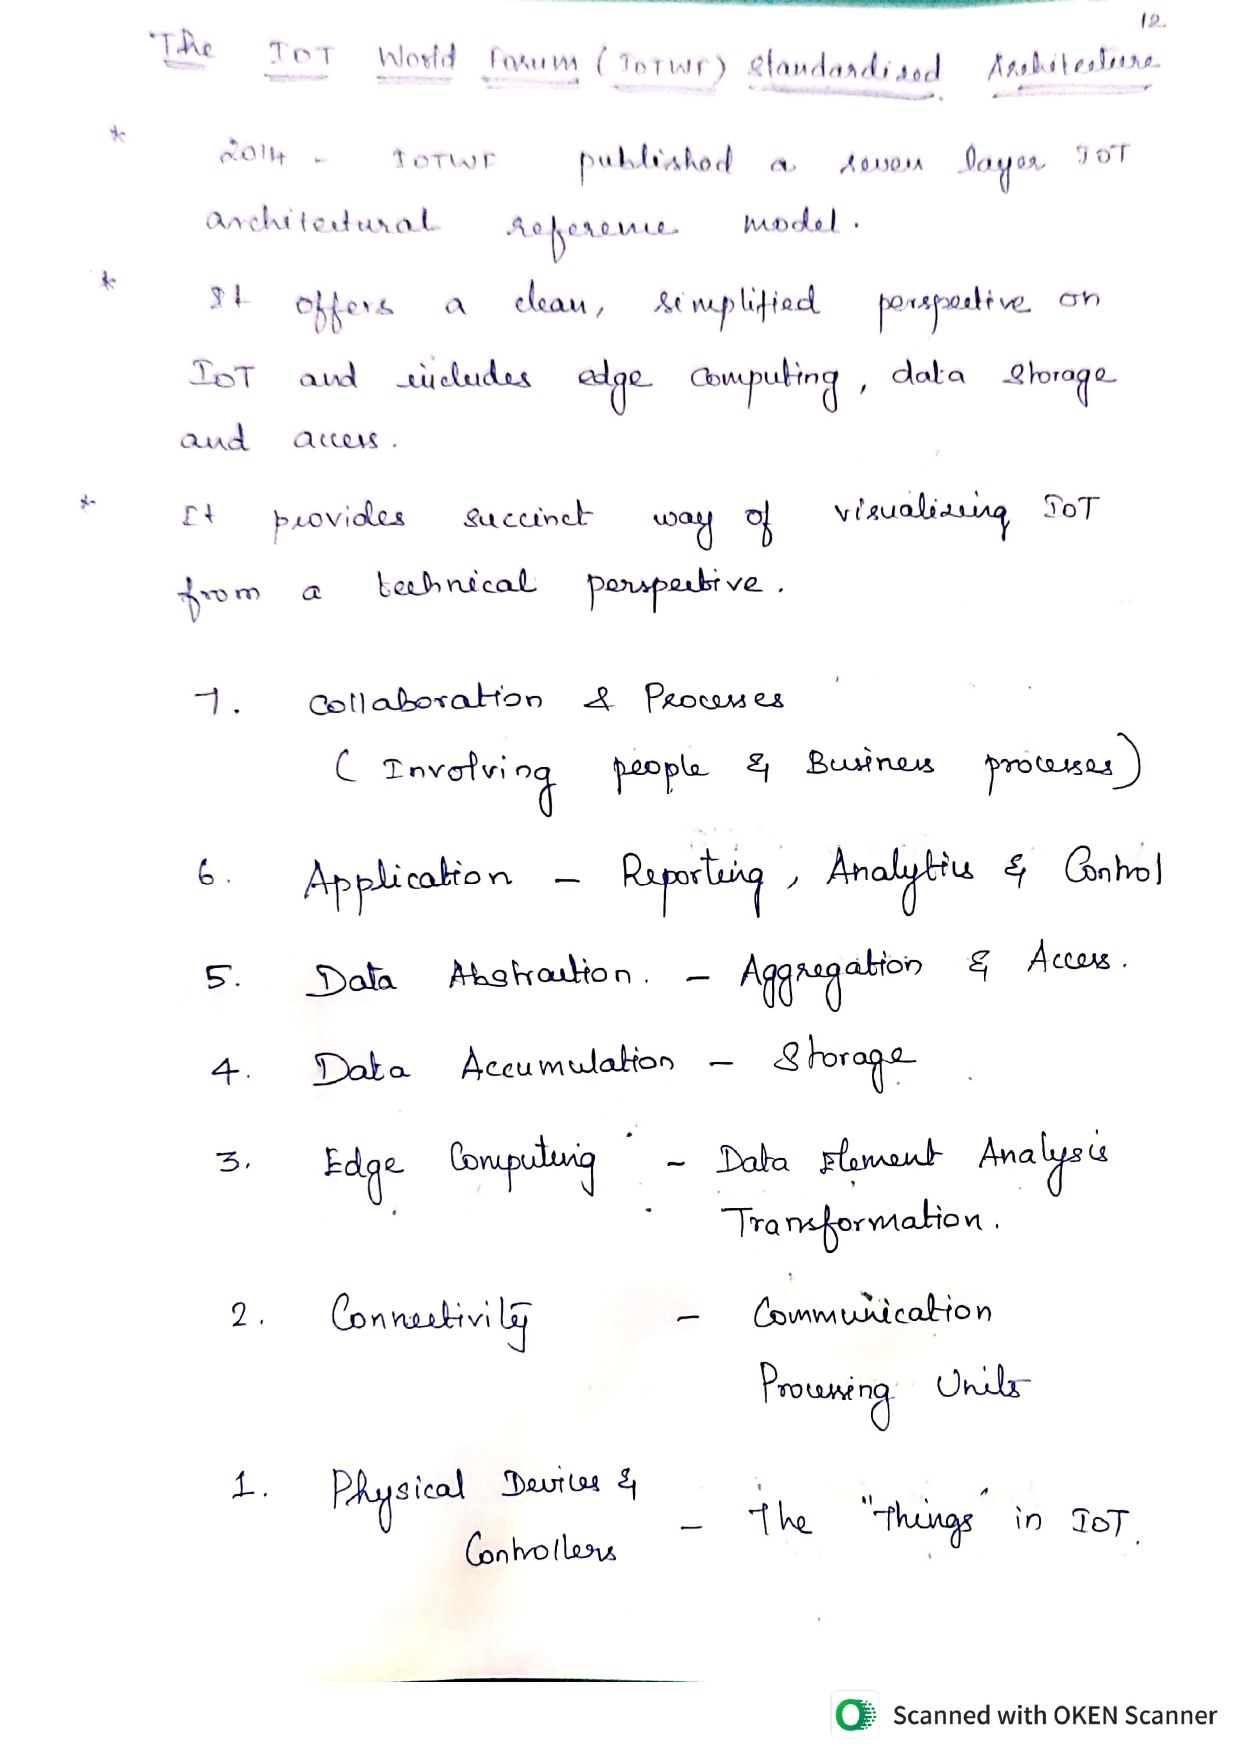 12.
The IOT World Forum (IOTWF) Standardized Architecture
* 2014 - IOTWF published a seven layer IOT
architectural reference model.
* It offers a clean, simplified perspective on
IoT and includes edge computing, data storage
and access.
* It provides succinct way of visualizing IoT
from a technical perspective.
7. Collaboration & Processes
(Involving people & Business processes)
6. Application - Reporting, Analytics & Control
5. Data Abstraction. - Aggregation & Access.
4. Data Accumulation - Storage
3. Edge Computing - Data Element Analysis
Transformation.
2. Connectivity - Communication
Processing Units
1. Physical Devices &
Controllers - The "Things" in IoT.
Scanned with OKEN Scanner